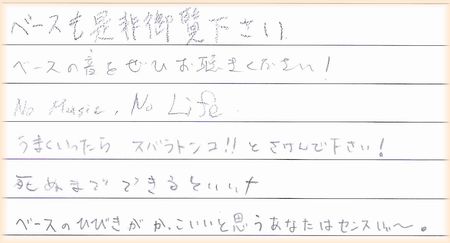 ベースも是非御覧下さい
ベースの音をぜひお聴きください!
No Music, No Life.
うまくいったら スバラトンコ!!とさけんで下さい!
死ぬまでできるといいナ
ベースのひびきがかっこいいと思うあなたはセンスいい〜。